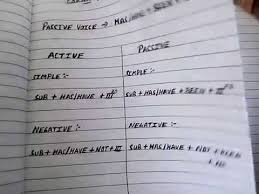 PASSIVE VOICE → HAS/HAVE + BEEN +
ACTIVE
PASSIVE
SIMPLE :-
SUB + HAS/HAVE + III
SIMPLE :-
SUB + HAS/HAVE + BEEN + III
NEGATIVE :-
SUB + HAS/HAVE + NOT + III
NEGATIVE :-
SUB + HAS/HAVE + NOT + BEEN